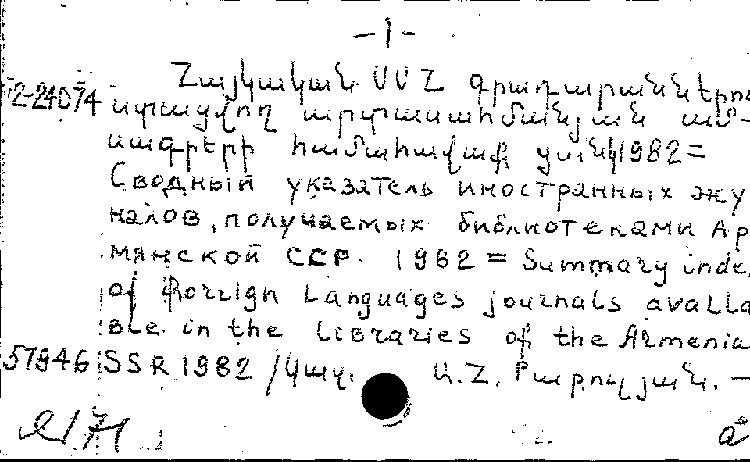 -1-
Հայկական ՍՍՀ գրադարաններու
72-24074 ստացվող արտասահմանյան ամ-
սագրերի համահավաք ցանկ 1982=
Сводный указатель иностранных жу
налов, получаемых библиотеками Ар
мянской ССР. 1982 = Summary inde
of Foreign Languages journals availa
ble in the libraries of the Armenia
57946 SSR 1982 / Կազ. Ա.Հ. Բաբուջյան. —
171